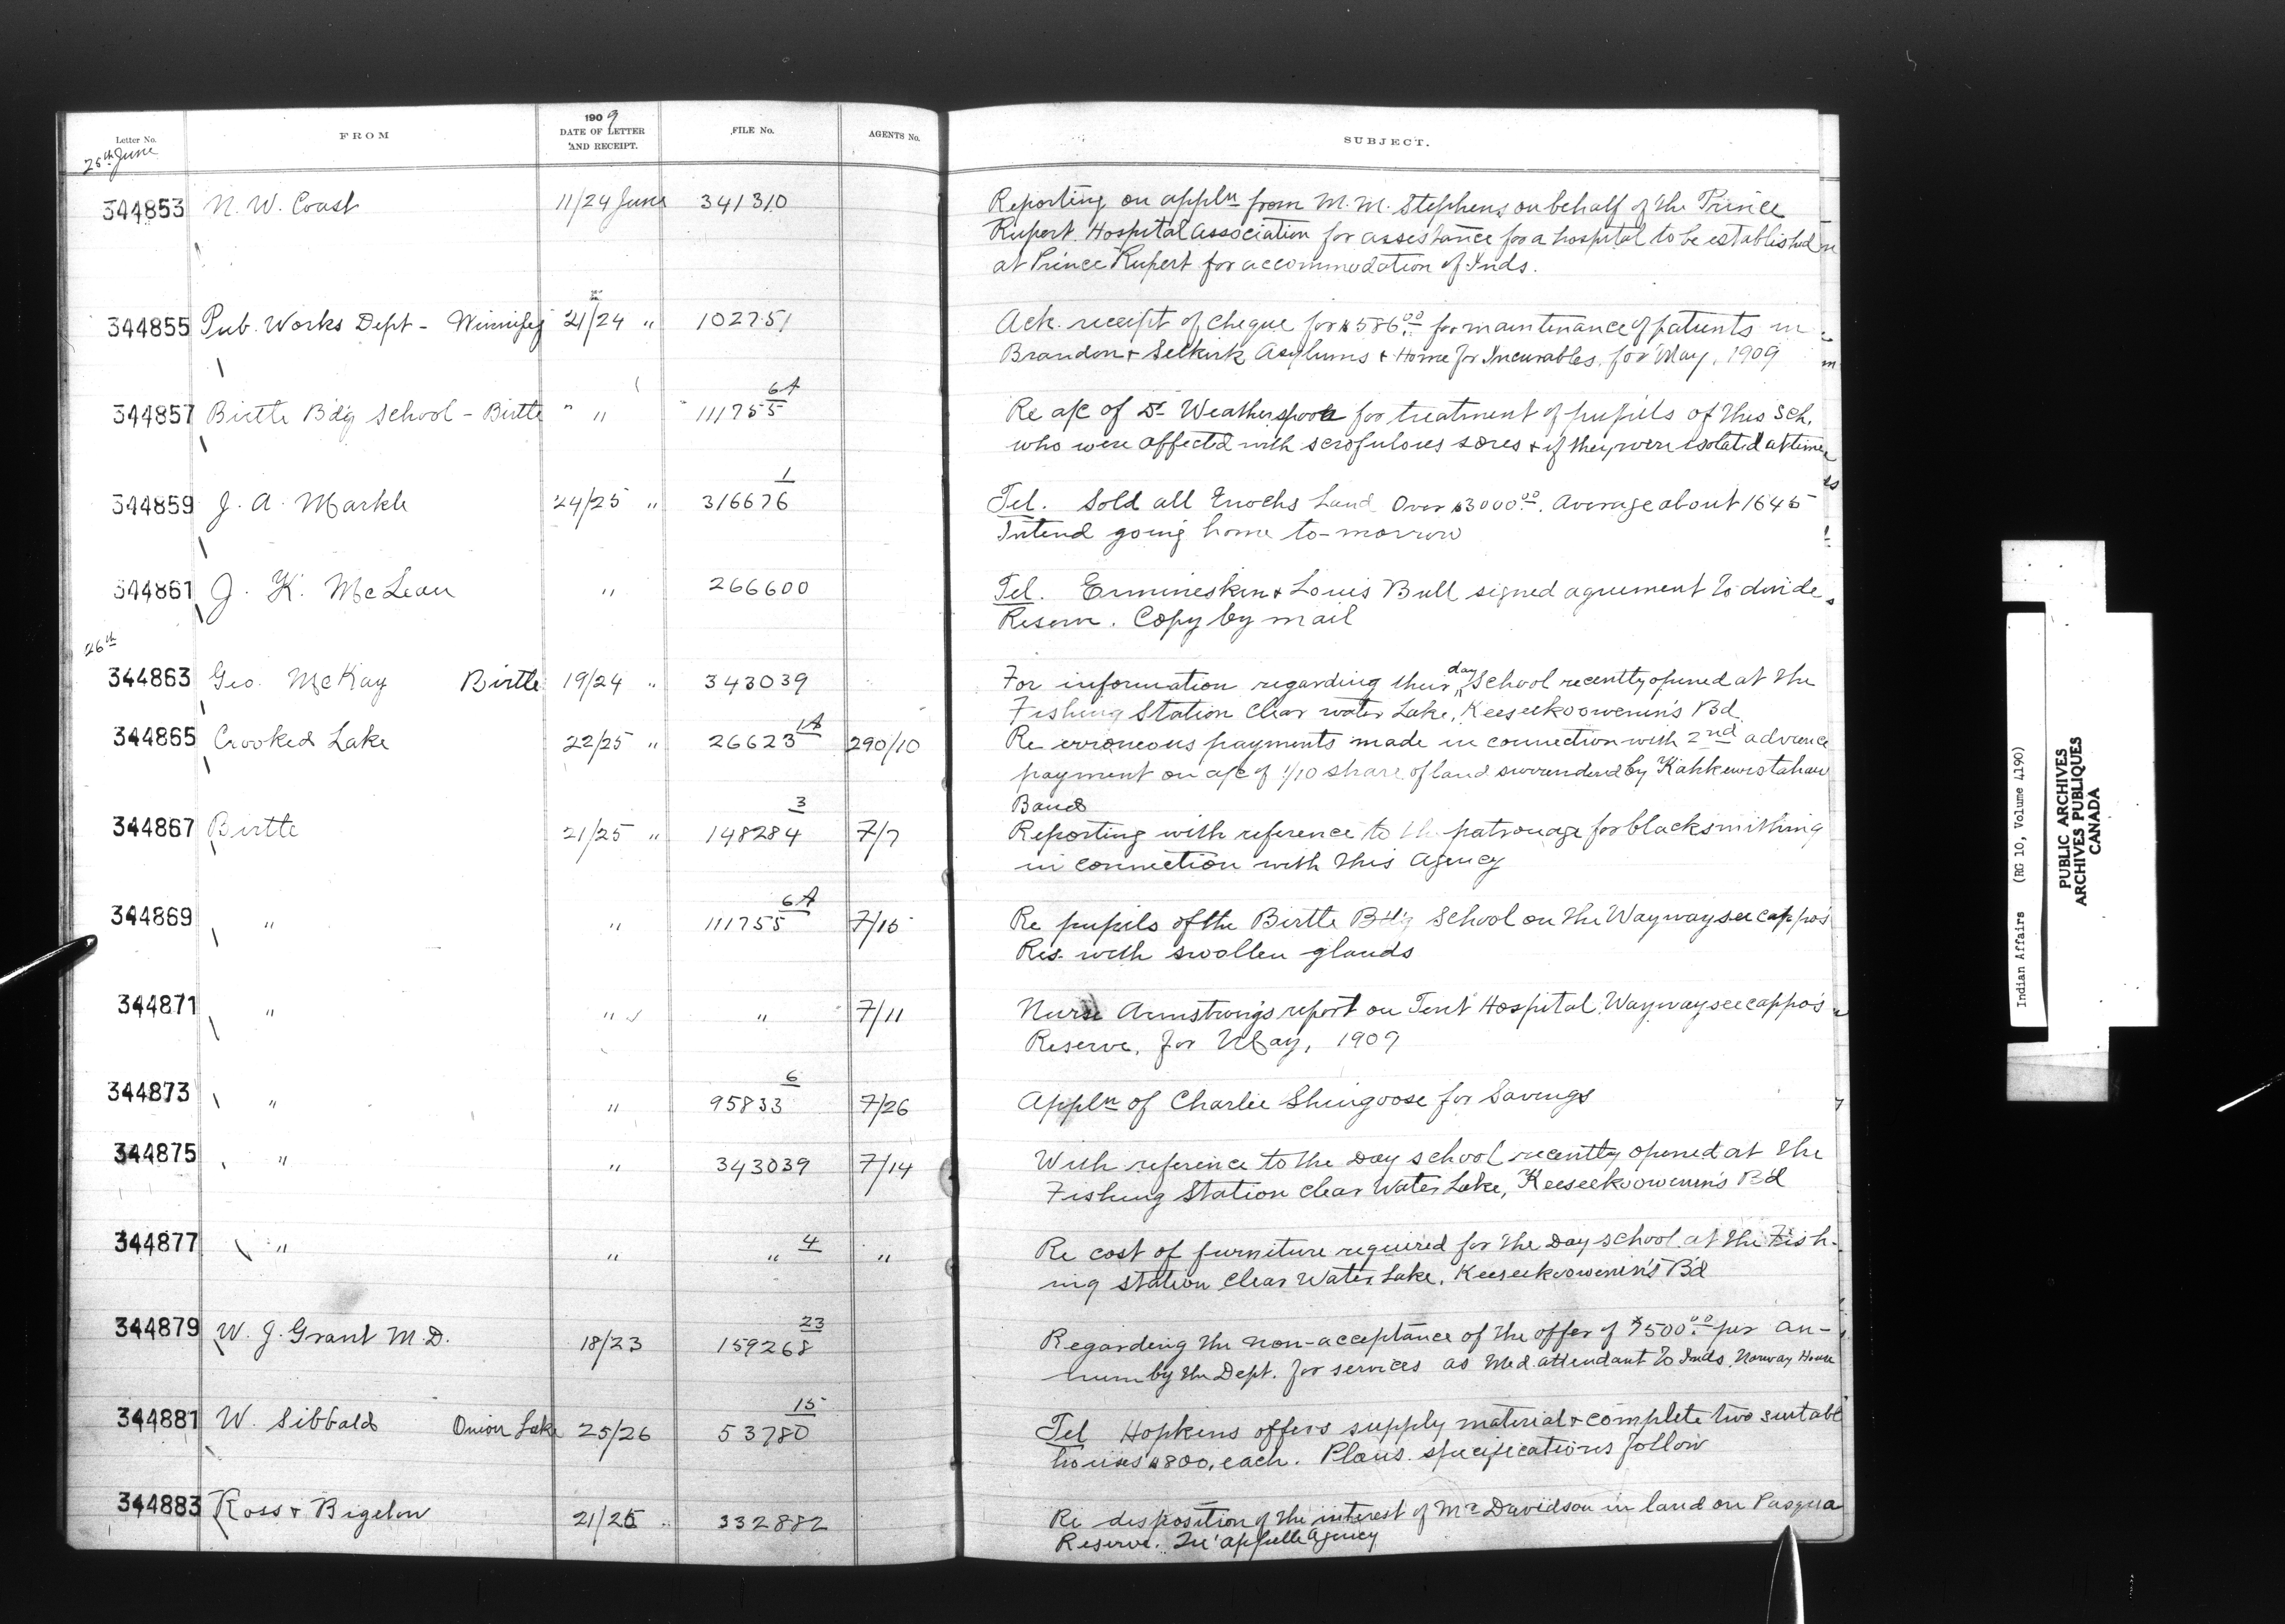 Letter No. FROM 1909 DATE OF LETTER AND RECEIPT. FILE No. AGENTS No. SUBJECT.
25th June
344853 N. W. Coast 11/24 June 341310 Reporting on appln from M. M. Stephens on behalf of the Prince
Rupert Hospital Association for assistance for a hospital to be established
at Prince Rupert for accommodation of Inds.
344855 Pub. Works Dept - Winnipeg 21/24 " 102751 Ack. receipt of cheque for $586.00 for maintenance of patients in
Brandon & Selkirk Asylums & Home for Incurables, for May, 1909
344857 Birtle Bd'g School - Birtle " " 111755 6A Re a/c of Dr Weatherspoon for treatment of pupils of this Sch.
who were affected with scrofulous sores & if they were isolated at time
344859 J. A. Markle 24/25 " 316676 1 Tel. Sold all Enochs Land Over $3000.00. Average about 1645
Intend going home to-morrow
344861 J. K. McLean " 266600 Tel. Ermineskin & Louis Bull signed agreement to divide
Reserve. Copy by mail
26th
344863 Geo. McKay Birtle 19/24 " 343039 For information regarding their day School recently opened at the
Fishing Station Clear water Lake, Keeseekoowenin's Bd.
344865 Crooked Lake 22/25 " 26623 1A 290/10 Re erroneous payments made in connection with 2nd advance
payment on a/c of 1/10 share of land surrendered by Kahkewistahaw
Band
344867 Birtle 21/25 " 148284 3 7/7 Reporting with reference to the patronage for blacksmithing
in connection with this Agency
344869 " " 111755 6A 7/15 Re pupils of the Birtle Bd'g School on the Waywayseecappo's
Res. with swollen glands
344871 " " " 7/11 Nurse Armstrong's report on Tent Hospital Waywayseecappo's
Reserve, for May, 1909
344873 " " 95833 6 7/26 Appln of Charlie Shingoose for Savings
344875 " " 343039 7/14 With reference to the Day school recently opened at the
Fishing Station Clear Water Lake, Keeseekoowenin's B'd
344877 " " " 4 " Re cost of furniture required for the Day school at the Fish-
ing station Clear Water Lake, Keeseekoowenin's B'd
344879 W. J. Grant M.D. 18/23 159268 23 Regarding the non-acceptance of the offer of $500.00 per an-
num by the Dept. for services as Med. attendant to Inds. Norway House
344881 W. Sibbald Onion Lake 25/26 53780 15 Tel Hopkins offers supply material & complete two suitabl
houses $800. each. Plans specifications follow
344883 Ross & Bigelow 21/25 332882 Re disposition of the interest of Mr Davidson in land on Pasqua
Reserve. Qu'appelle Agency
Indian Affairs (RG 10, Volume 4190)
PUBLIC ARCHIVES
ARCHIVES PUBLIQUES
CANADA